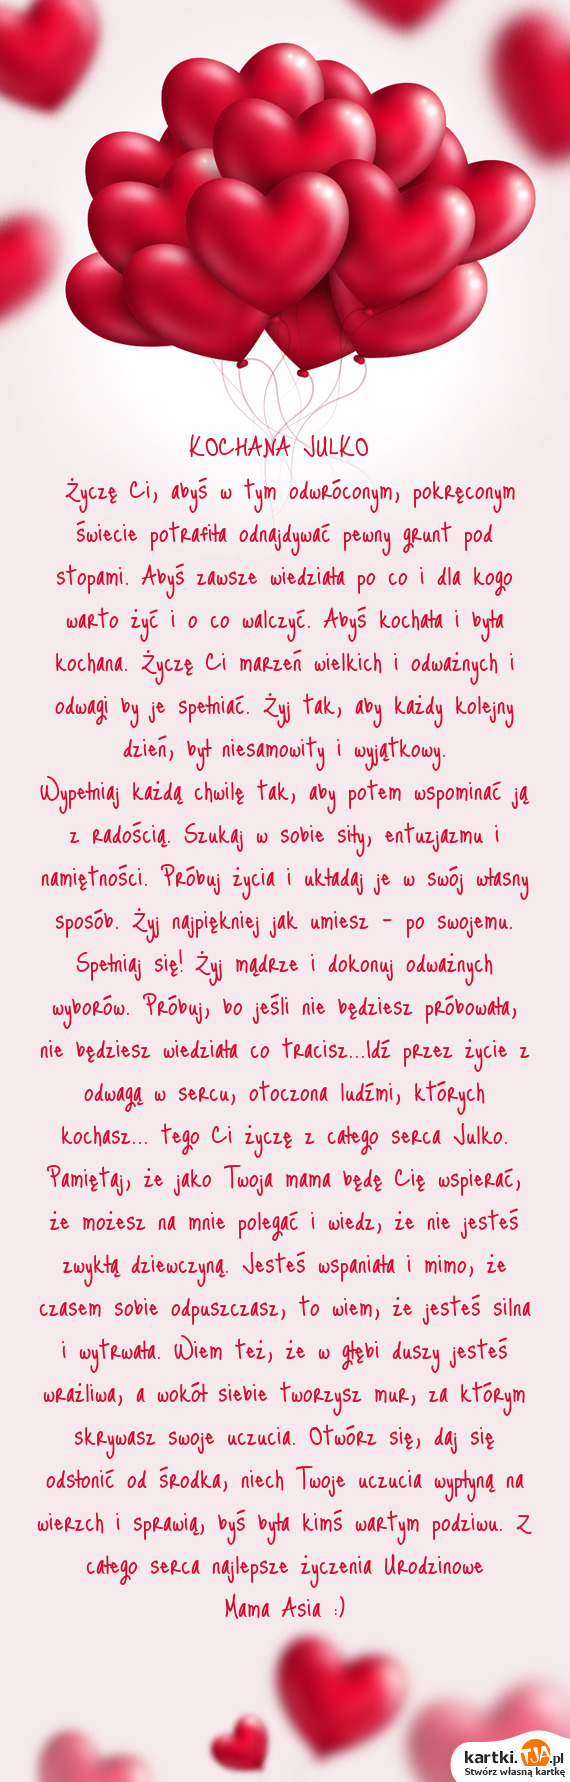 KOCHANA JULKO
Życzę Ci, abyś w tym odwróconym, pokręconym
świecie potrafiła odnajdywać pewny grunt pod
stopami. Abyś zawsze wiedziała po co i dla kogo
warto żyć i o co walczyć. Abyś kochała i była
kochana. Życzę Ci marzeń wielkich i odważnych i
odwagi by je spełniać. Żyj tak, aby każdy kolejny
dzień, był niesamowity i wyjątkowy.
Wypełniaj każdą chwilę tak, aby potem wspominać ją
z radością. Szukaj w sobie siły, entuzjazmu i
namiętności. Próbuj życia i układaj je w swój własny
sposób. Żyj najpiękniej jak umiesz - po swojemu.
Spełniaj się! Żyj mądrze i dokonuj odważnych
wyborów. Próbuj, bo jeśli nie będziesz próbowała,
nie będziesz wiedziała co tracisz...Idź przez życie z
odwagą w sercu, otoczona ludźmi, których
kochasz... tego Ci życzę z całego serca Julko.
Pamiętaj, że jako Twoja mama będę Cię wspierać,
że możesz na mnie polegać i wiedz, że nie jesteś
zwykłą dziewczyną. Jesteś wspaniała i mimo, że
czasem sobie odpuszczasz, to wiem, że jesteś silna
i wytrwała. Wiem też, że w głębi duszy jesteś
wrażliwa, a wokół siebie tworzysz mur, za którym
skrywasz swoje uczucia. Otwórz się, daj się
odsłonić od środka, niech Twoje uczucia wypłyną na
wierzch i sprawią, byś była kimś wartym podziwu. Z
całego serca najlepsze życzenia Urodzinowe
Mama Asia :)
kartki.TJA.pl
Stwórz własną kartkę